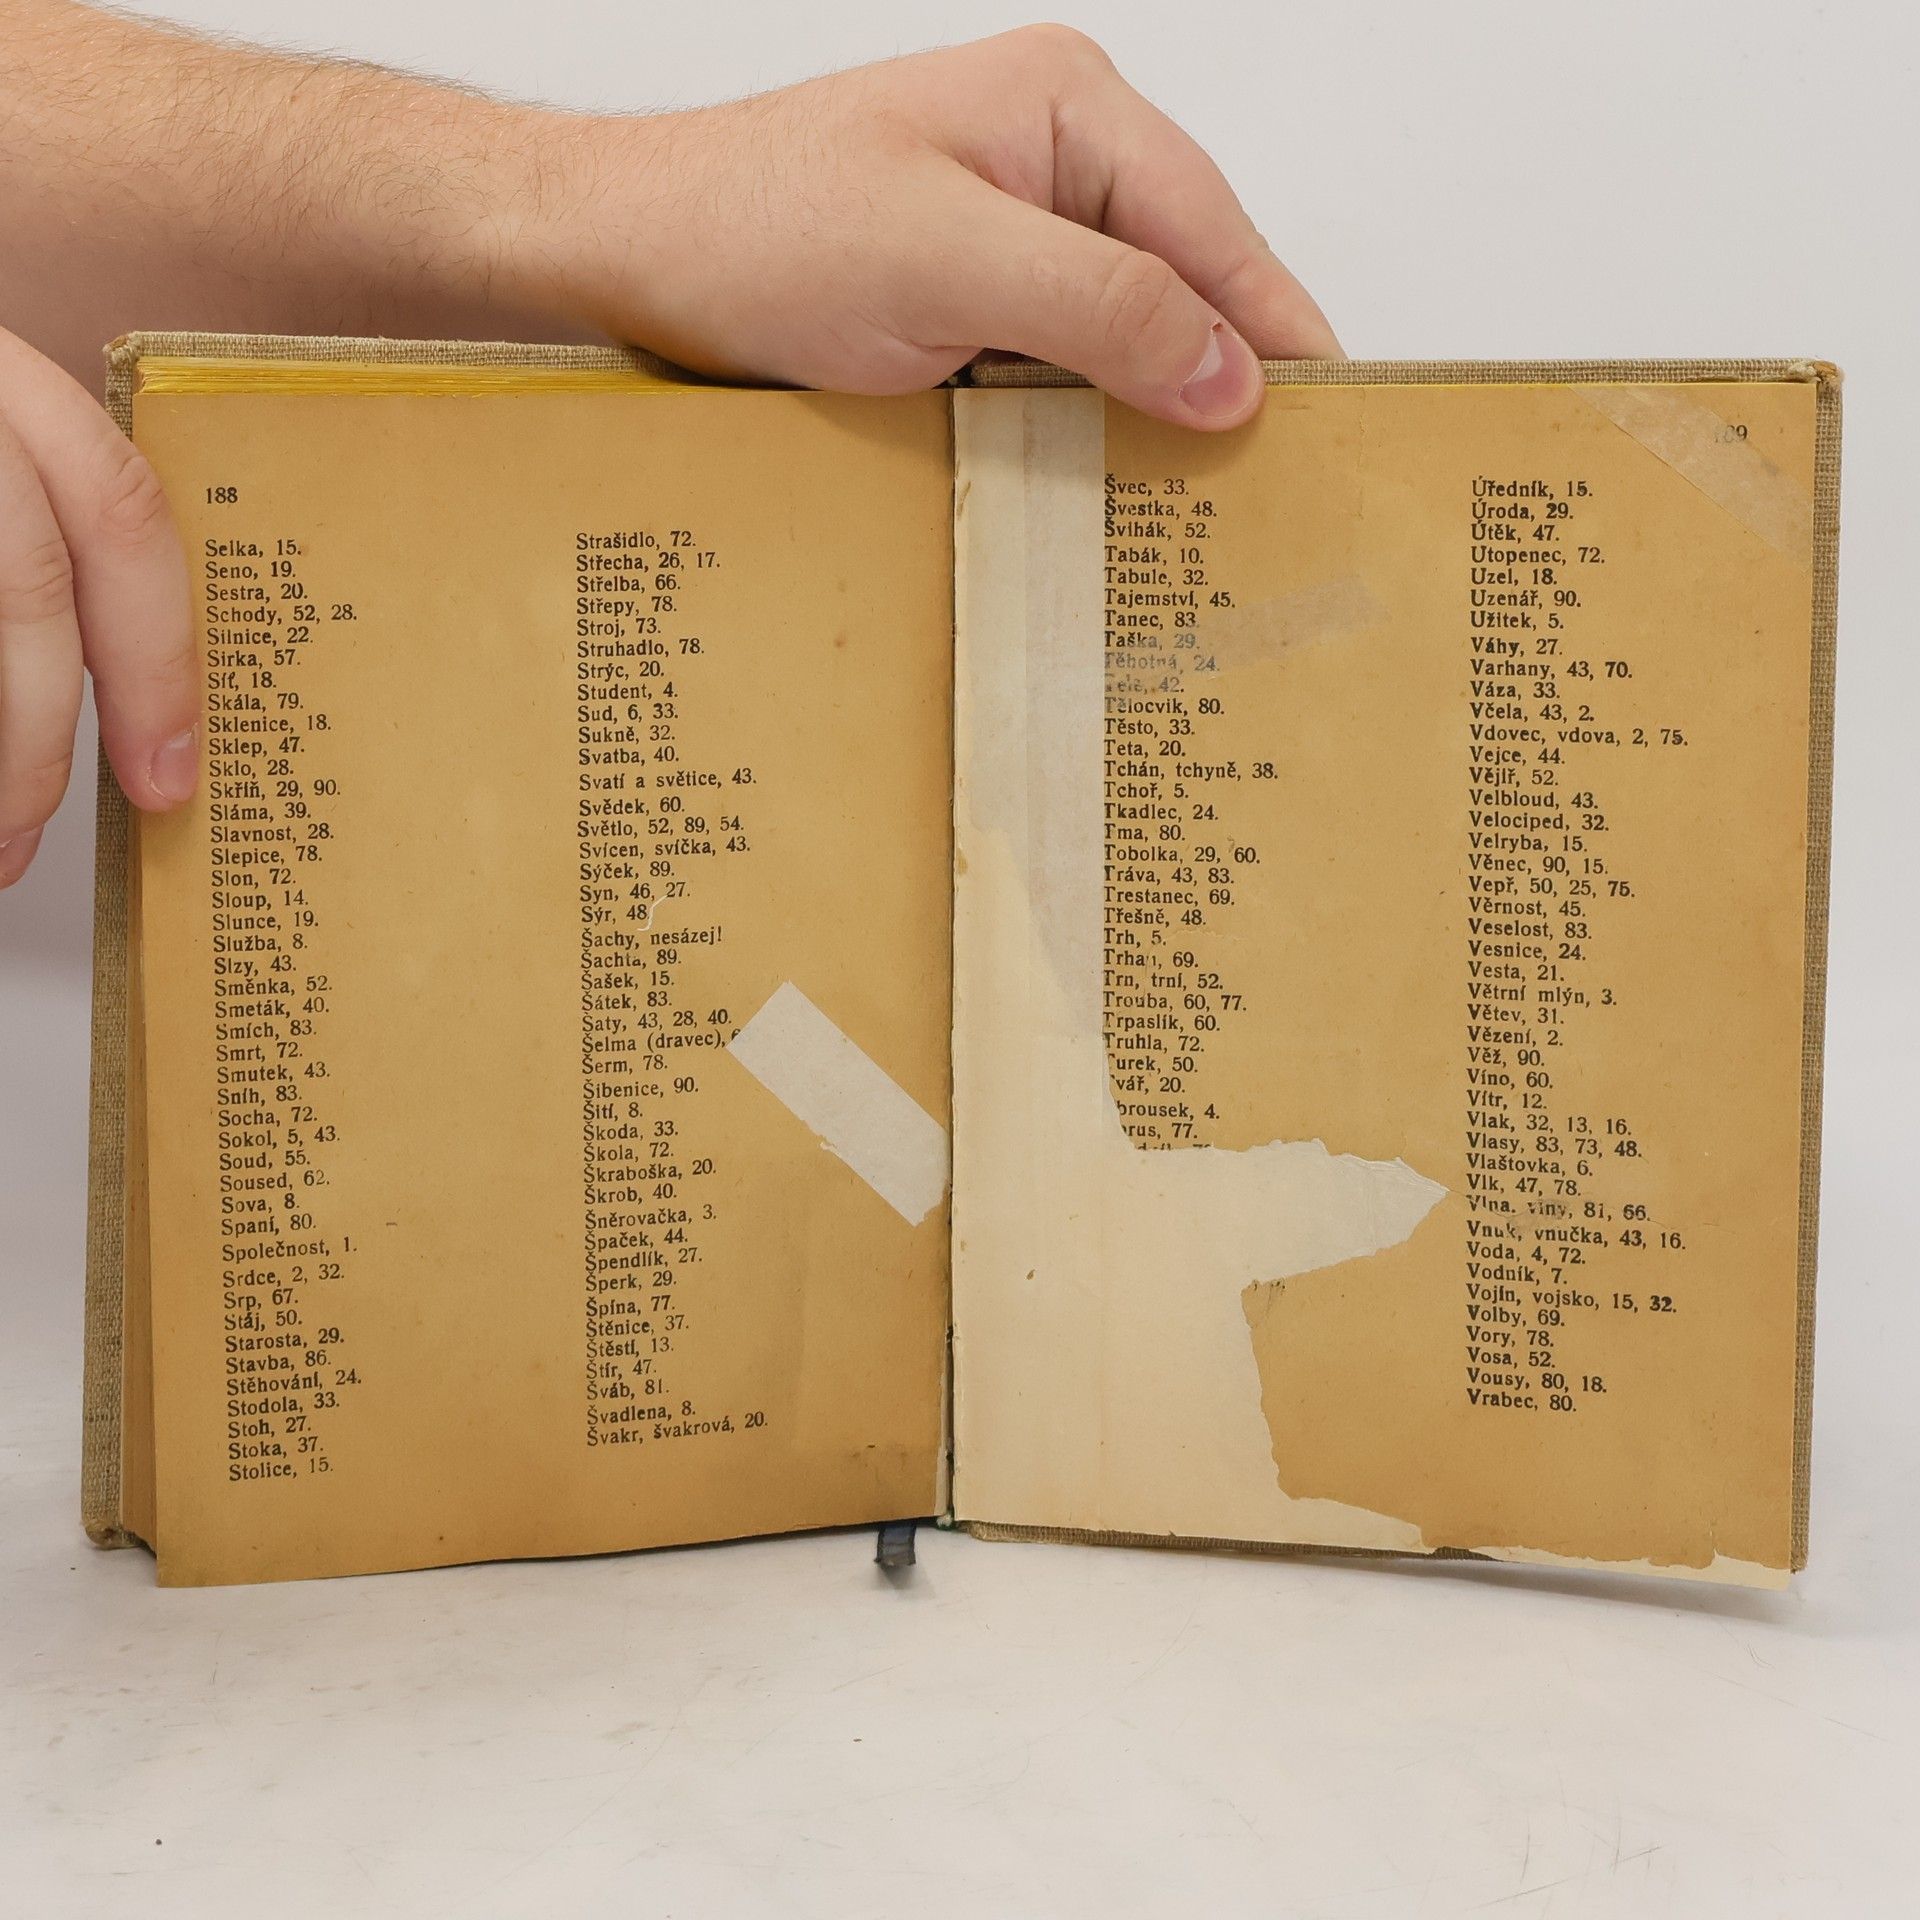 188
Selka, 15.
Seno, 19.
Sestra, 20.
Schody, 52, 28.
Silnice, 22.
Sirka, 57.
Síť, 18.
Skála, 79.
Sklenice, 18.
Sklep, 47.
Sklo, 28.
Skříň, 29, 90.
Sláma, 39.
Slavnost, 28.
Slepice, 78.
Slon, 72.
Sloup, 14.
Slunce, 19.
Služba, 8.
Slzy, 43.
Směnka, 52.
Smeták, 40.
Smích, 83.
Smrt, 72.
Smutek, 43.
Sníh, 83.
Socha, 72.
Sokol, 5, 43.
Soud, 55.
Soused, 62.
Sova, 8.
Spaní, 80.
Společnost, 1.
Srdce, 2, 32.
Srp, 67.
Stáj, 50.
Starosta, 29.
Stavba, 86.
Stěhování, 24.
Stodola, 33.
Stoh, 27.
Stoka, 37.
Stolice, 15.
Strašidlo, 72.
Střecha, 26, 17.
Střelba, 66.
Střepy, 78.
Stroj, 73.
Struhadlo, 78.
Strýc, 20.
Student, 4.
Sud, 6, 33.
Sukně, 32.
Svatba, 40.
Svatí a světice, 43.
Svědek, 60.
Světlo, 52, 89, 54.
Svícen, svíčka, 43.
Sýček, 89.
Syn, 46, 27.
Sýr, 48
Šachy, nesázej!
Šachta, 89.
Šašek, 15.
Šátek, 83.
Šaty, 43, 28, 40.
Šelma (dravec),
Šerm, 78.
Šibenice, 90.
Šití, 8.
Škoda, 33.
Škola, 72.
Škraboška, 20.
Škrob, 40.
Šněrovačka, 3.
Špaček, 44.
Špendlík, 27.
Šperk, 29.
Špína, 77.
Štěnice, 37.
Štěstí, 13.
Štír, 47.
Šváb, 81.
Švadlena, 8.
Švakr, švakrová, 20.
Švec, 33.
Švestka, 48.
Švihák, 52.
Tabák, 10.
Tabule, 32.
Tajemství, 45.
Tanec, 83.
Taška, 29.
Těhotná, 24.
Tele, 42.
Tělocvik, 80.
Těsto, 33.
Teta, 20.
Tchán, tchyně, 38.
Tchoř, 5.
Tkadlec, 24.
Tma, 80.
Tobolka, 29, 60.
Tráva, 43, 83.
Trestanec, 69.
Třešně, 48.
Trh, 5.
Trhan, 69.
Trn, trní, 52.
Trouba, 60, 77.
Trpaslík, 60.
Truhla, 72.
Turek, 50.
Tvář, 20.
brousek, 4.
rus, 77.
Úředník, 15.
Úroda, 29.
Útěk, 47.
Utopenec, 72.
Uzel, 18.
Uzenář, 90.
Užitek, 5.
Váhy, 27.
Varhany, 43, 70.
Váza, 33.
Včela, 43, 2.
Vdovec, vdova, 2, 75.
Vejce, 44.
Vějíř, 52.
Velbloud, 43.
Velociped, 32.
Velryba, 15.
Věnec, 90, 15.
Vepř, 50, 25, 75.
Věrnost, 45.
Veselost, 83.
Vesnice, 24.
Vesta, 21.
Větrní mlýn, 3.
Větev, 31.
Vězení, 2.
Věž, 90.
Víno, 60.
Vítr, 12.
Vlak, 32, 13, 16.
Vlasy, 83, 73, 48.
Vlaštovka, 6.
Vlk, 47, 78.
Vlna. vlny, 81, 66.
Vnuk, vnučka, 43, 16.
Voda, 4, 72.
Vodník, 7.
Vojín, vojsko, 15, 32.
Volby, 69.
Vory, 78.
Vosa, 52.
Vousy, 80, 18.
Vrabec, 80.